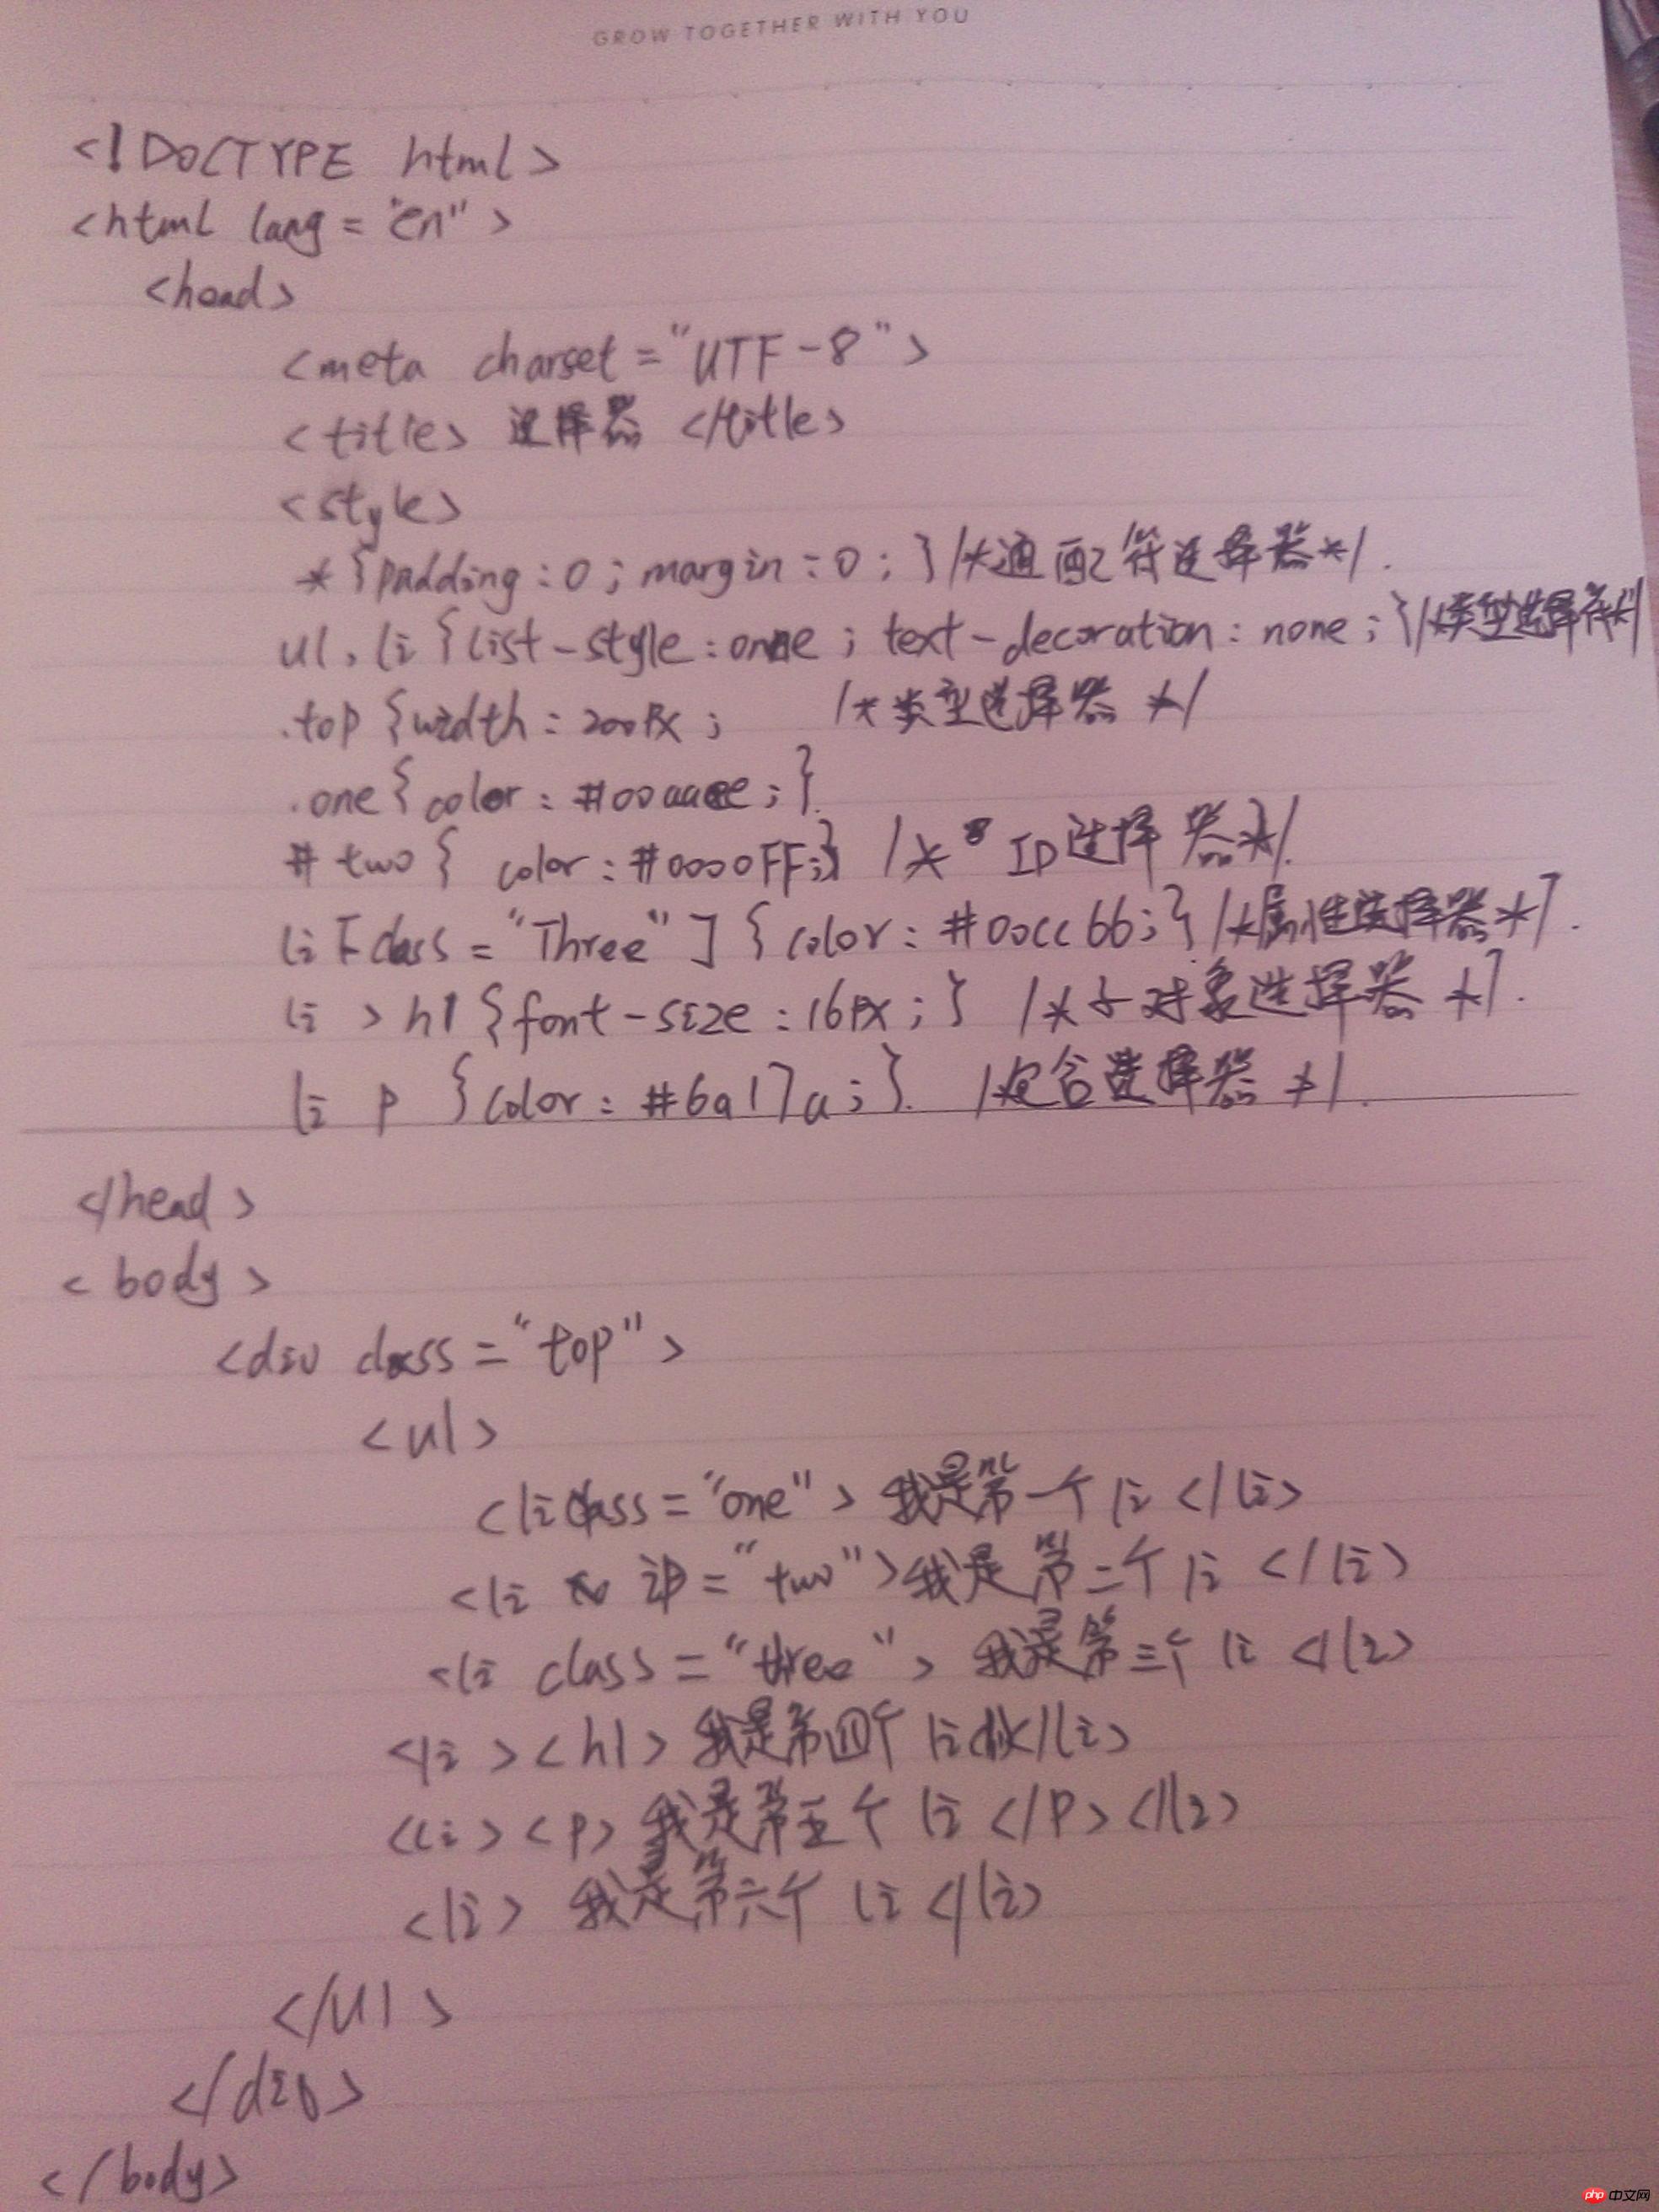 GROW TOGETHER WITH YOU
<!DOCTYPE html>
<html lang="en">
<head>
<meta charset="UTF-8">
<title> 选择器 </title>
<style>
*{padding:0;margin:0;}/*通配符选择器*/.
ul,li{list-style:onne;text-decoration:none;}/*类型选择符*/
.top{width:200px; /*类型选择器*/
.one{color:#00aaee;}.
#two{ color:#0000FF;} /* ID选择器*/.
li[class="Three"]{color:#00cc66;}/*属性选择器*/.
li >h1{font-size:16px;} /*子对象选择器*/.
li p {color:#6a17a;}. /*包含选择器*/.
</head>
<body>
<div class="top">
<ul>
<li class="one">我是第一个li</li>
<li ID="two">我是第二个li</li>
<li class="three">我是第三个li</li>
<li><h1>我是第四个li </li>
<li><p>我是第五个li</p></li>
<li>我是第六个li</li>
</ul>
</div>
</body>
php 中文网